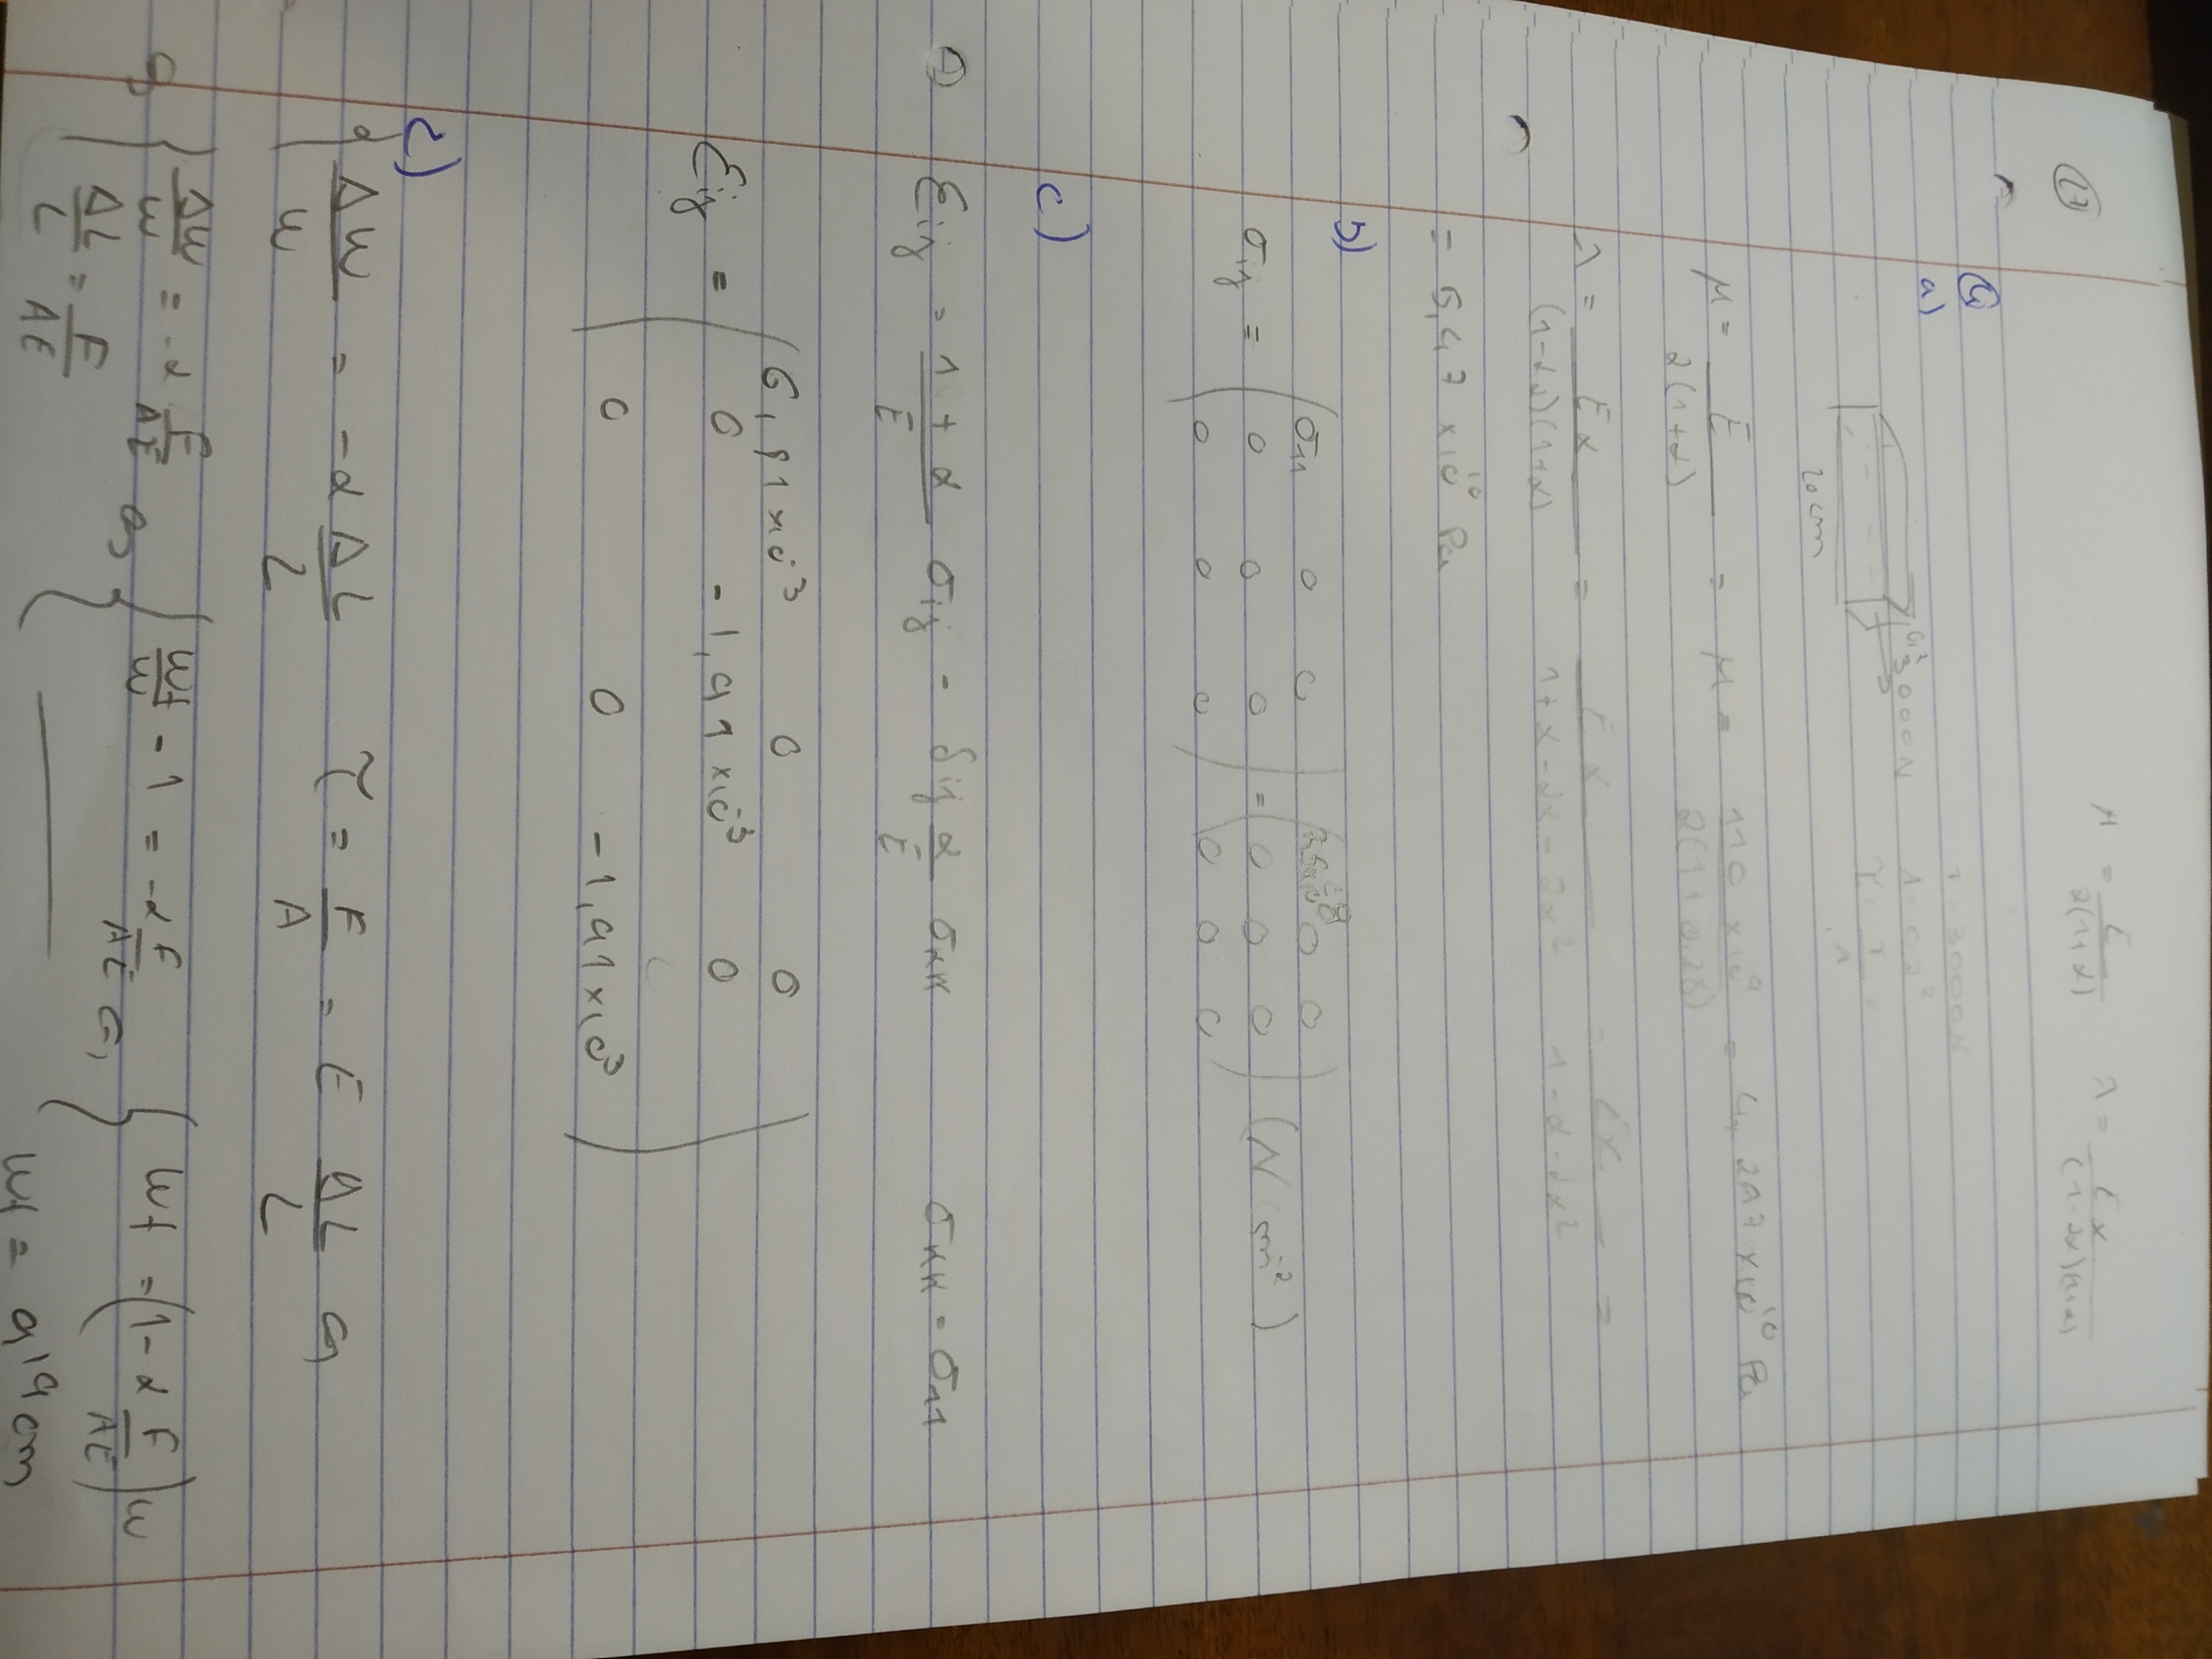 μ = E / 2(1+α)    λ = Eα / (1-2α)(1+α)
a)
3000N
20 cm
μ = E / 2(1+α) = μ = 110 x 10⁹ / 2(1+0,28) = 4,297 x 10¹⁰ Pa
λ = Eα / (1-2α)(1+α) = Eα / 1+α-2α-2α² = Eα / 1-α-2α² =
= 5,47 x 10¹⁰ Pa
b)
σij = ( σ11 0 0
0 0 0
0 0 0 ) = ( 0 0
0 0 0
0 0 0 ) (N/m²)
c)
εij = 1+α / E σij - δij α / E σκκ    σκκ = σ11
εij = ( 6,81 x 10⁻³ 0 0
0 -1,91 x 10⁻³ 0
0 0 -1,91 x 10⁻³ )
Δw / w = -α ΔL / L    τ = F / A = E ΔL / L
{ Δw / w = -α F / AE    { wf / w - 1 = -α F / AE    { wf = (1 - α F / AE) w
ΔL / L = F / AE    wf = 9,9 cm